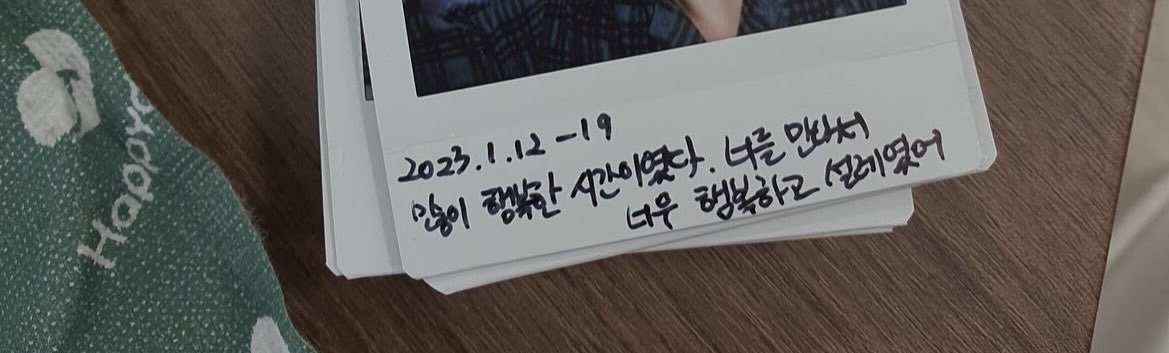 Happy
2023.1.12-19
많이 행복한 시간이였다. 너를 만나서
너무 행복하고 설레였어